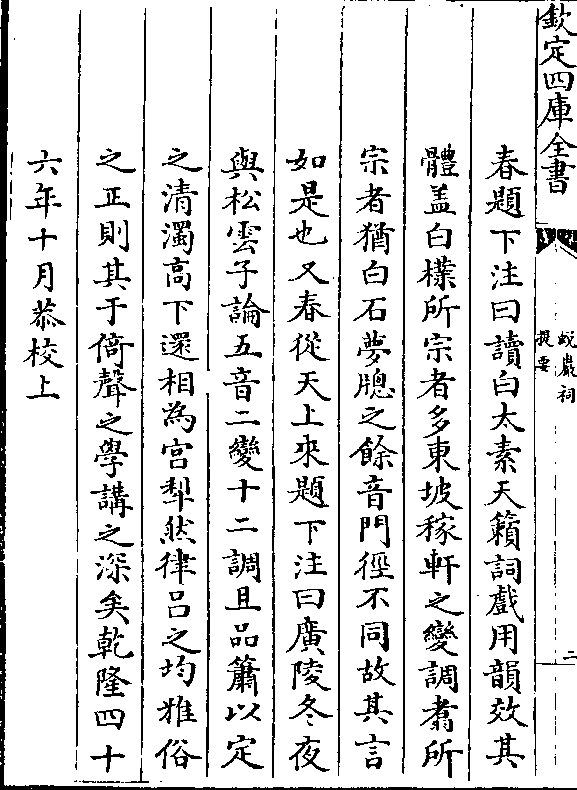 欽定四庫全書
蛻巖詞
提要
二
春題下注曰讀白太素天籟詞戲用韻效其
體蓋白樸所宗者多東坡稼軒之變調翥所
宗者猶白石夢牕之餘音門徑不同故其言
如是也又春從天上來題下注曰廣陵冬夜
與松雲子論五音二變十二調且品簫以定
之清濁高下還相為宮犁然律吕之均雅俗
之正則其于倚聲之學講之深矣乾隆四十
六年十月恭校上